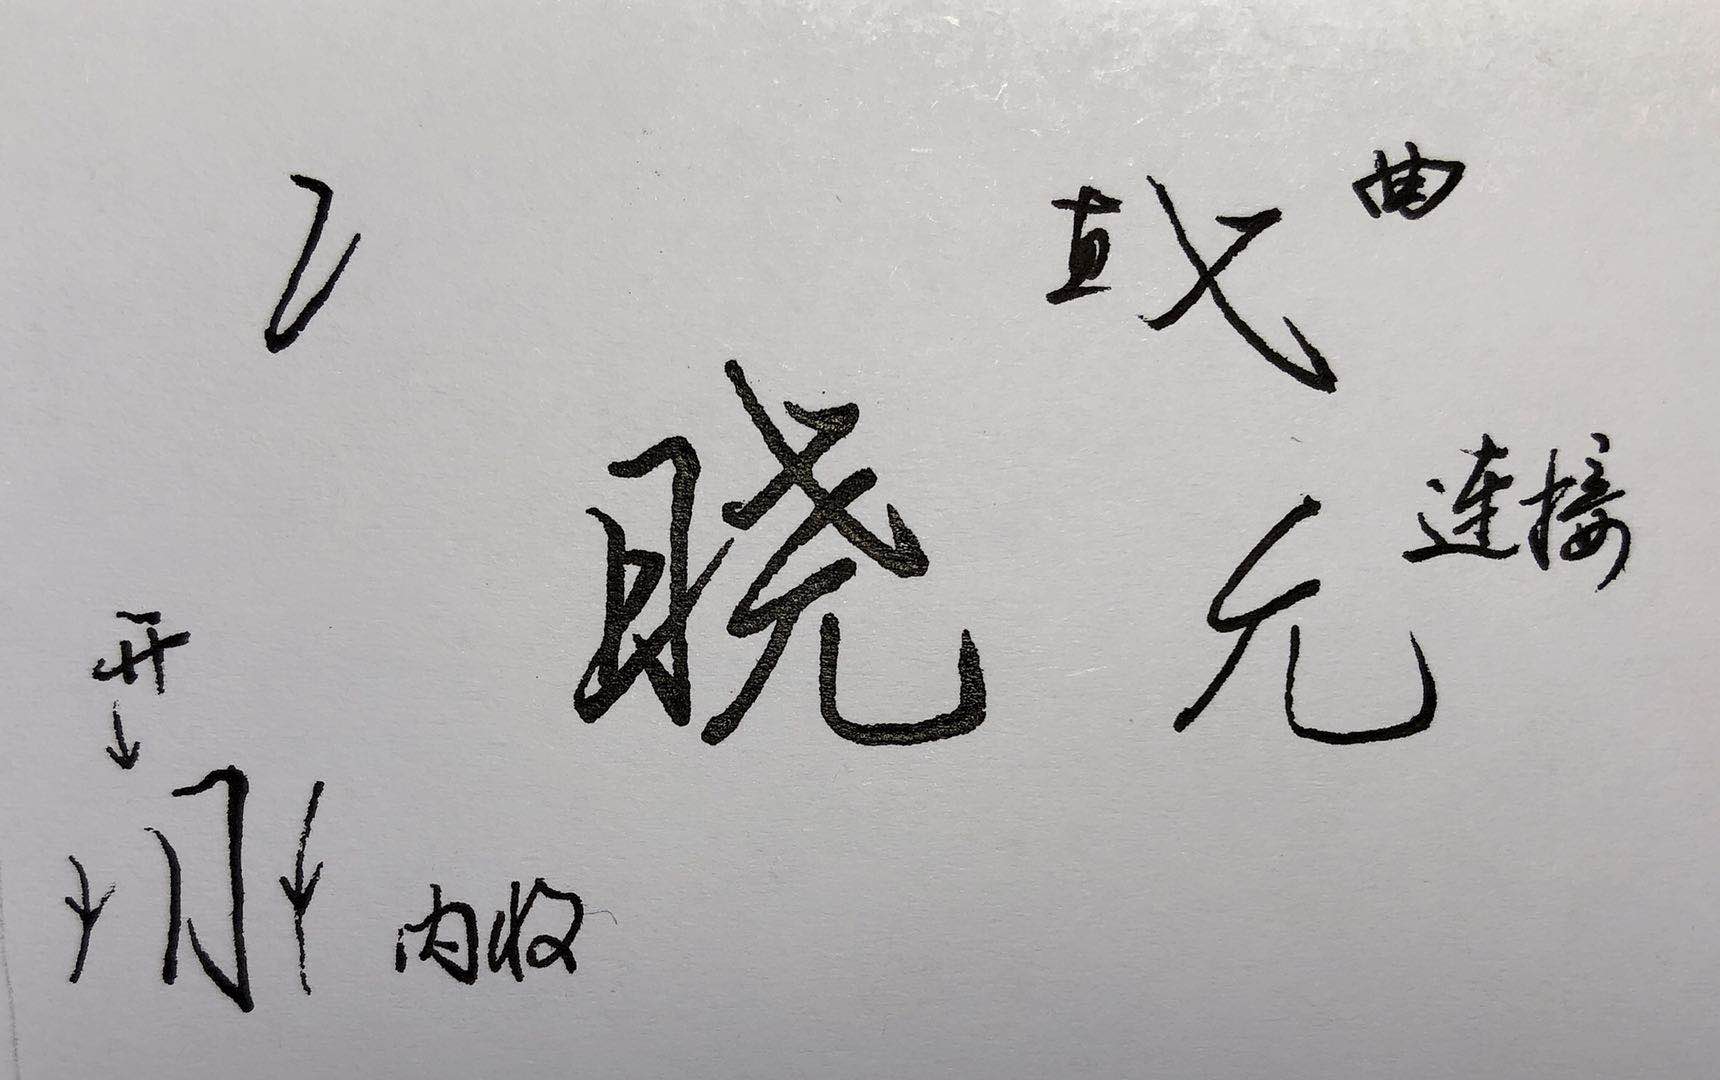 直 曲
晓
连接
开
内收